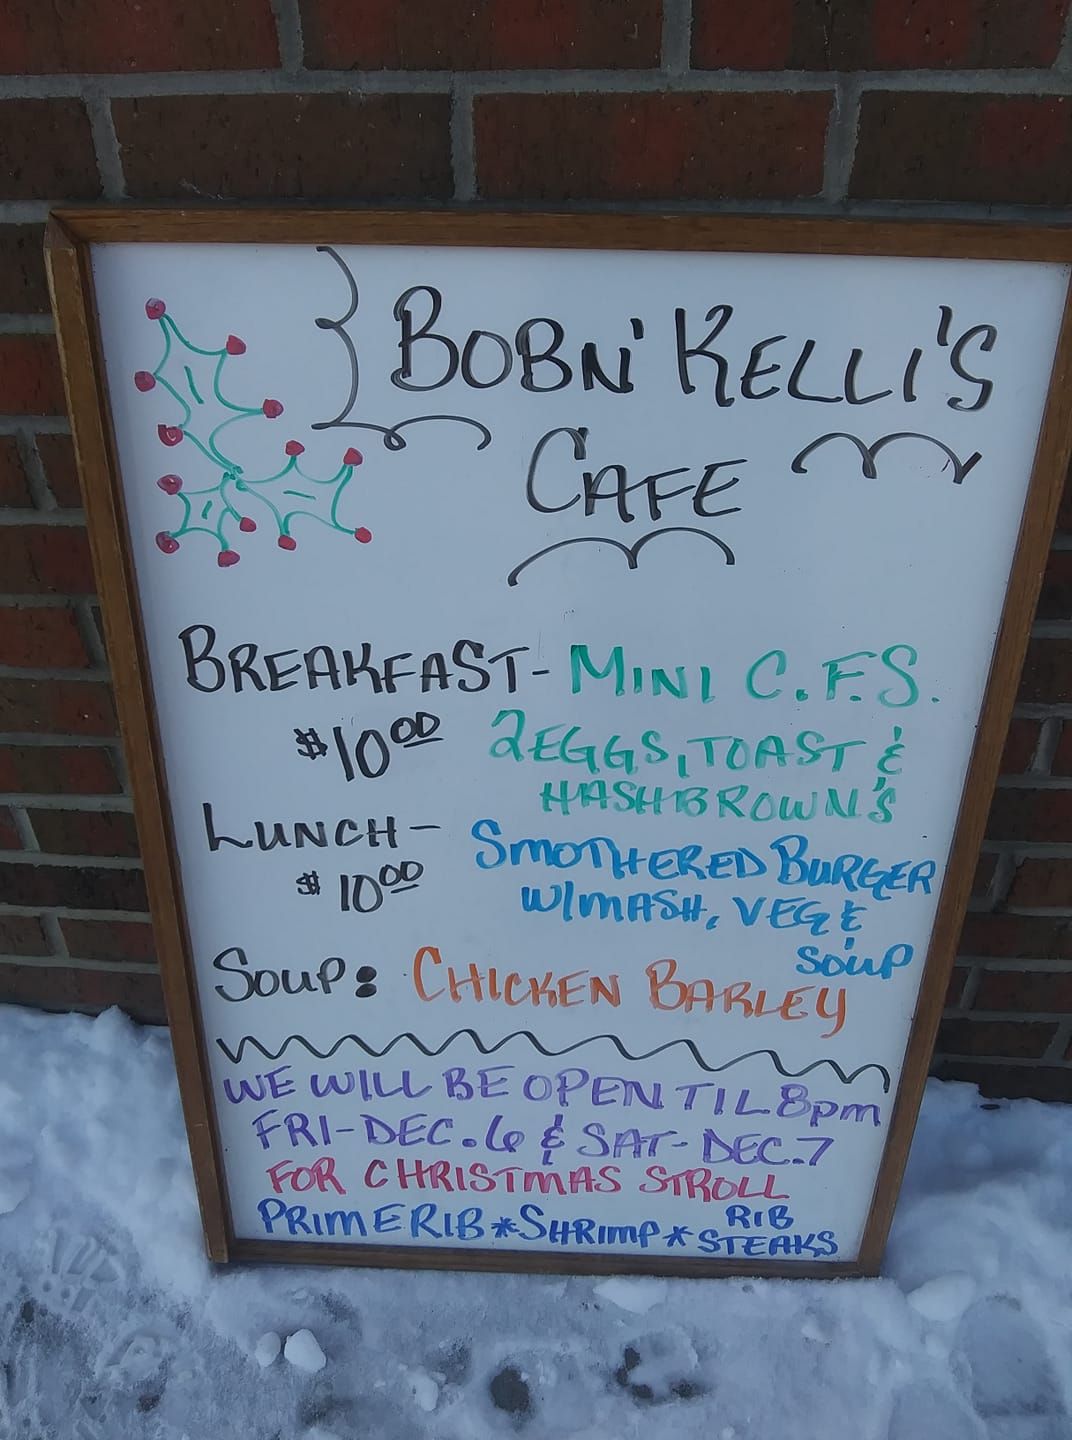 BOBN' KELLI'S
CAFE
BREAKFAST - MINI C.F.S.
$10.00 2 EGGS, TOAST &
HASHBROWN'S
LUNCH - SMOTHERED BURGER
$10.00 W/MASH, VEG &
SOUP
SOUP: CHICKEN BARLEY
WE WILL BE OPEN TIL 8pm
FRI-DEC. 6 & SAT-DEC. 7
FOR CHRISTMAS STROLL
PRIME RIB * SHRIMP * RIB
STEAKS